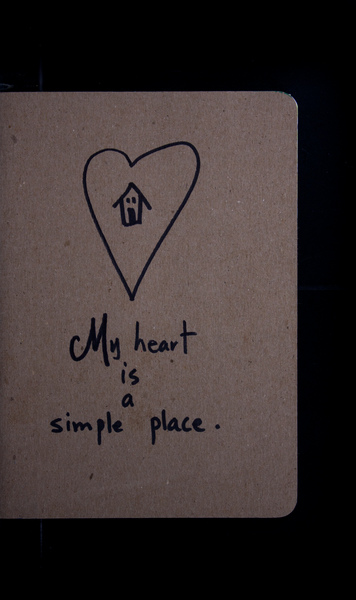 My heart
is
a
simple place.